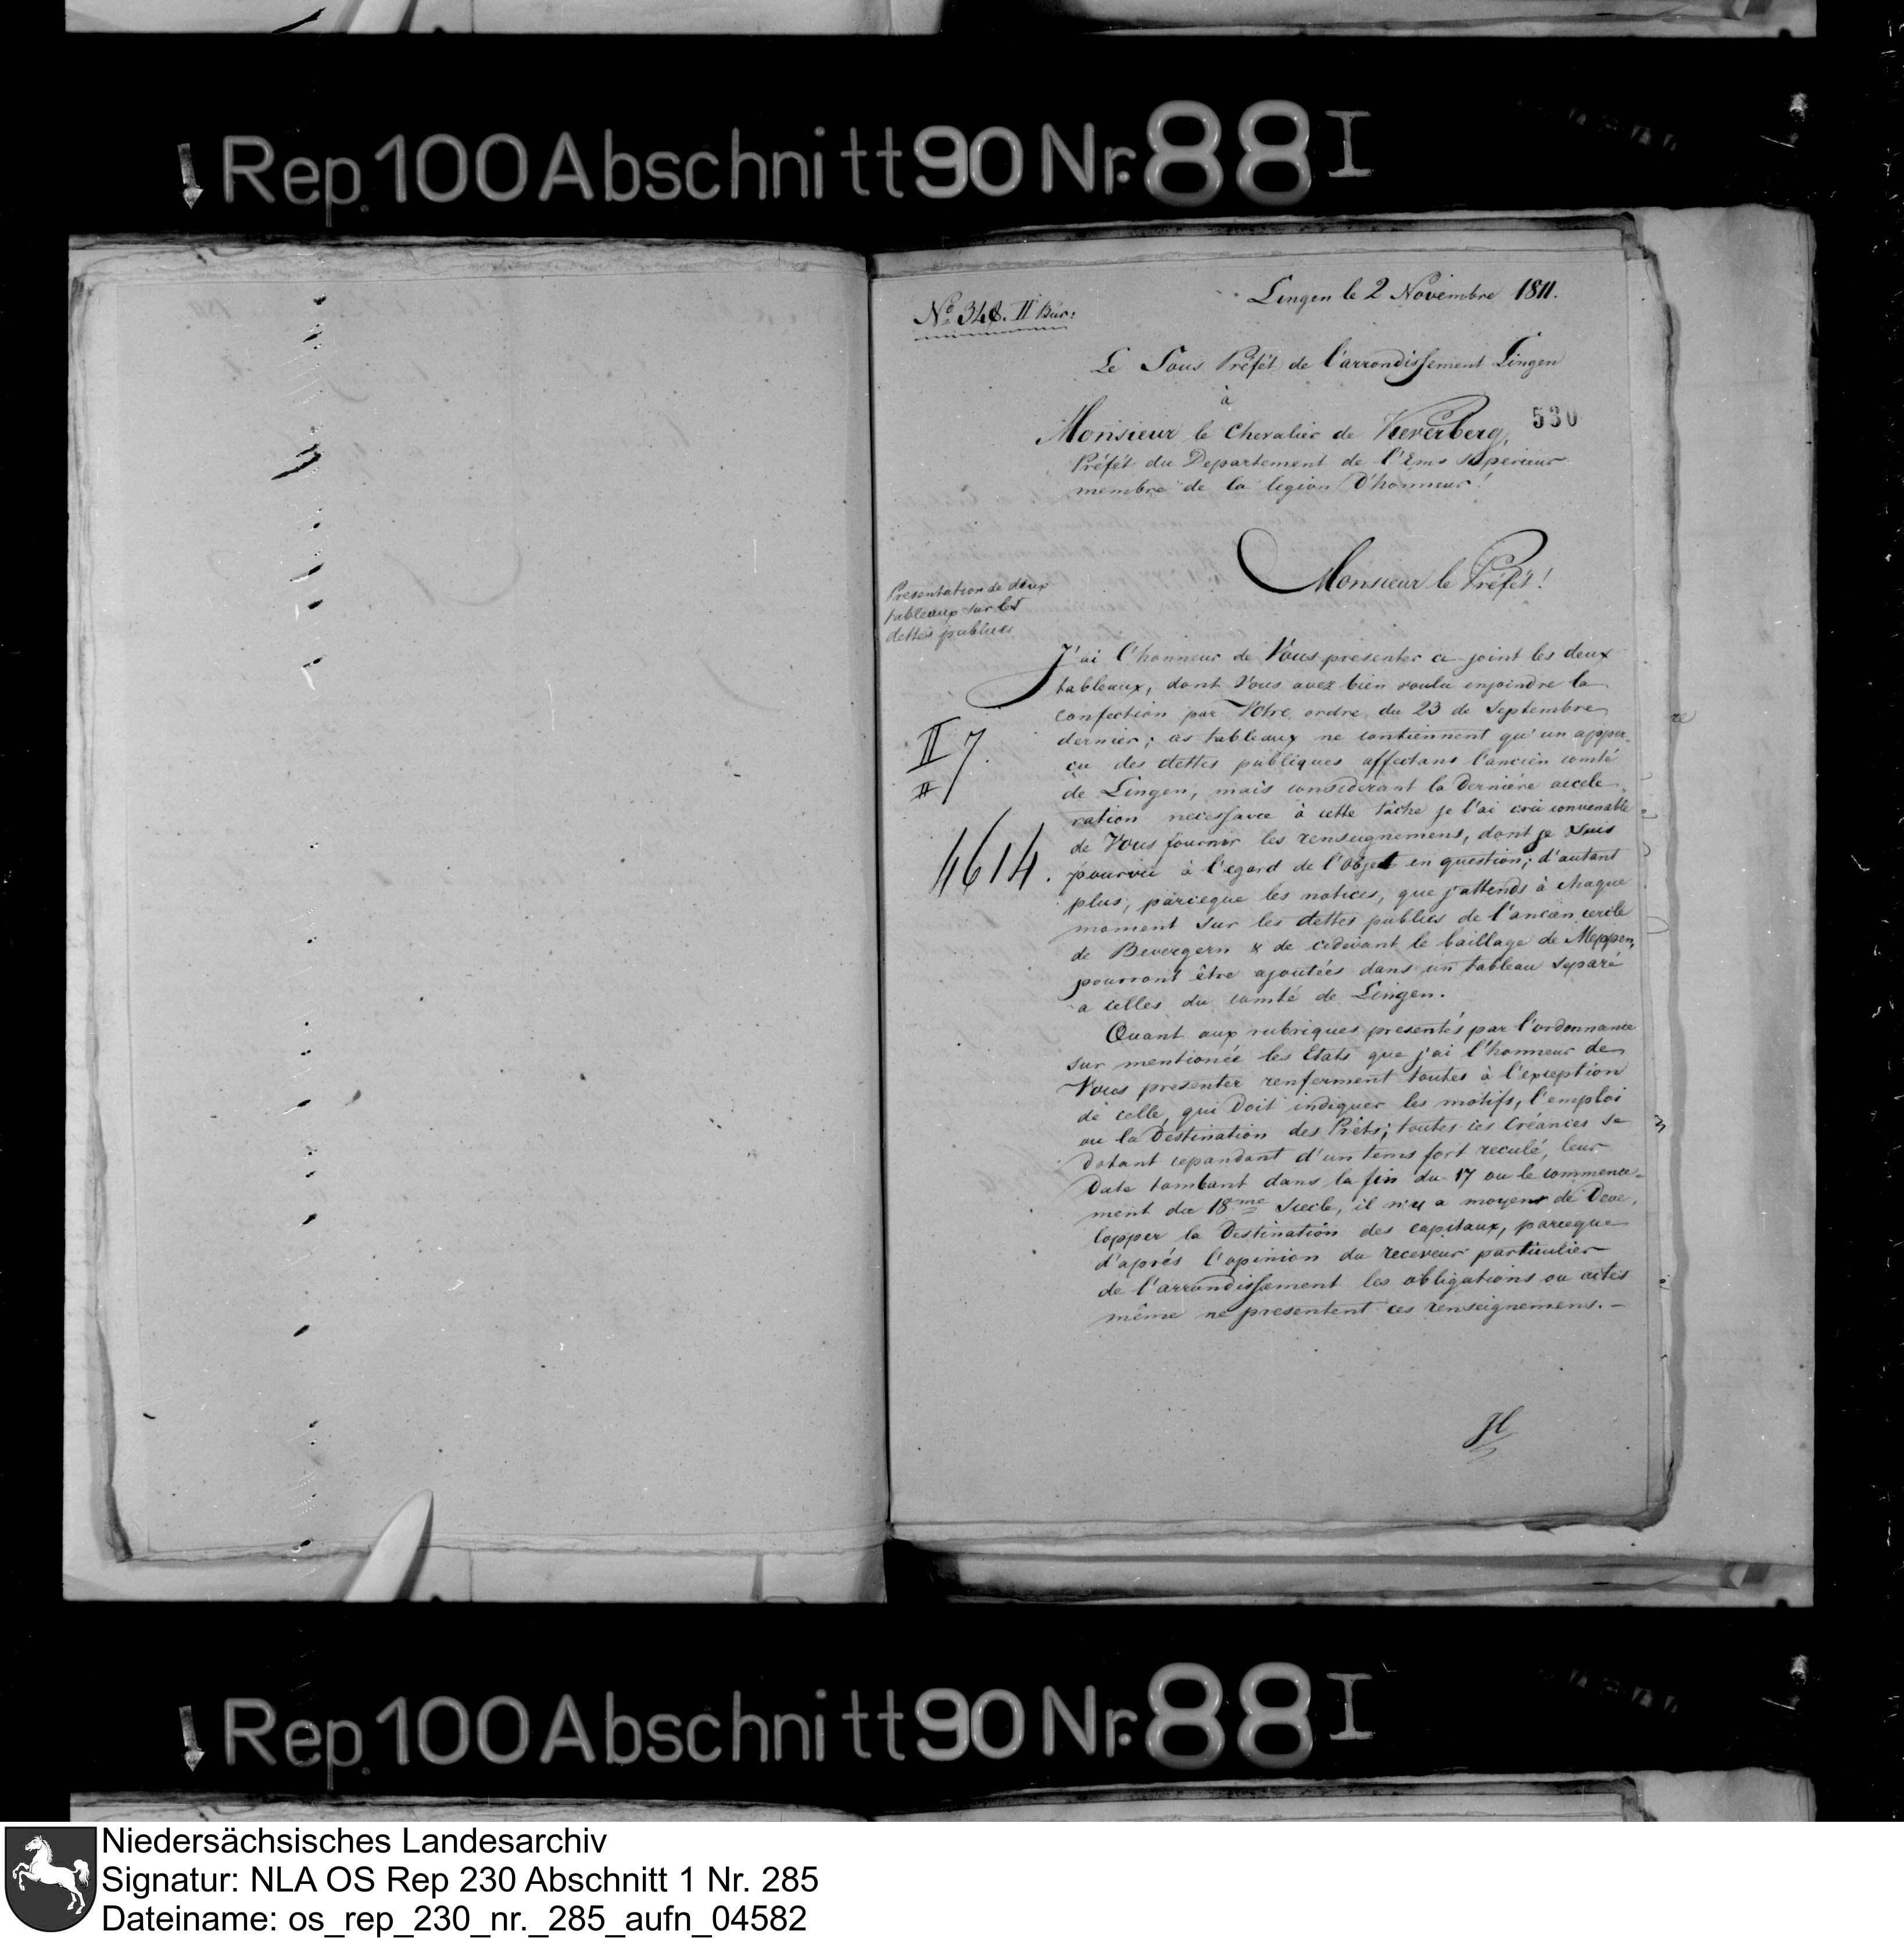 Rep. 100 Abschnitt 90 Nr. 88 I
Lingen le 2 Novembre 1811.
No 348. II Bur:
Le Sous Préfét de l'arrondissement Lingen
à
530
Monsieur le Chevalier de Keverberg,
Préfét du Departement de l'Ems superieur
membre de la legion D'honneur!
Monsieur le Préfét!
Presentation de deux
tableaux sur les
dettes publics
J'ai l'honneur de Vous presenter ci joint les deux
tableaux, dont Vous avez bien voulu enjoindre la
confection par Votre ordre du 23 de Septembre
dernier; ces tableaux ne contiennent qu'un apper-
çu des dettes publiques affectans l'ancien comté
de Lingen, mais considerant la Derniére accele-
ration necessaire à cette tâche je l'ai crû convenable
de Vous fournir les renseignemens, dont je suis
pourvû à l'egard de l'objet en question; d'autant
plus, parceque les notices, que j'attends à chaque
moment sur les dettes publics de l'ancien cercle
de Bevergern & de cidevant le baillage de Meppen,
pourront être ajoutées dans un tableau separé
a celles du comté de Lingen.
Quant aux rubriques presentés par l'ordonnance
sur mentionée les Etats que j'ai l'honneur de
Vous presenter renferment toutes à l'exception
de celle, qui Doit indiquer les motifs, l'emploi
ou la Déstination des Prêts; toutes ces Créances se
datant cependant d'un tems fort reculé, leur
Date tombant dans la fin du 17 ou le commence-
ment du 18me Siecle, il n'y a moyens de Deve-
lopper la Destination des capitaux, parceque
d'aprés l'opinion du receveur particulier
de l'arrondissement les obligations ou actes
même ne presentent ces renseignemens. -
II 7.
4614.
Rep. 100 Abschnitt 90 Nr. 88 I
Niedersächsisches Landesarchiv
Signatur: NLA OS Rep 230 Abschnitt 1 Nr. 285
Dateiname: os_rep_230_nr._285_aufn_04582